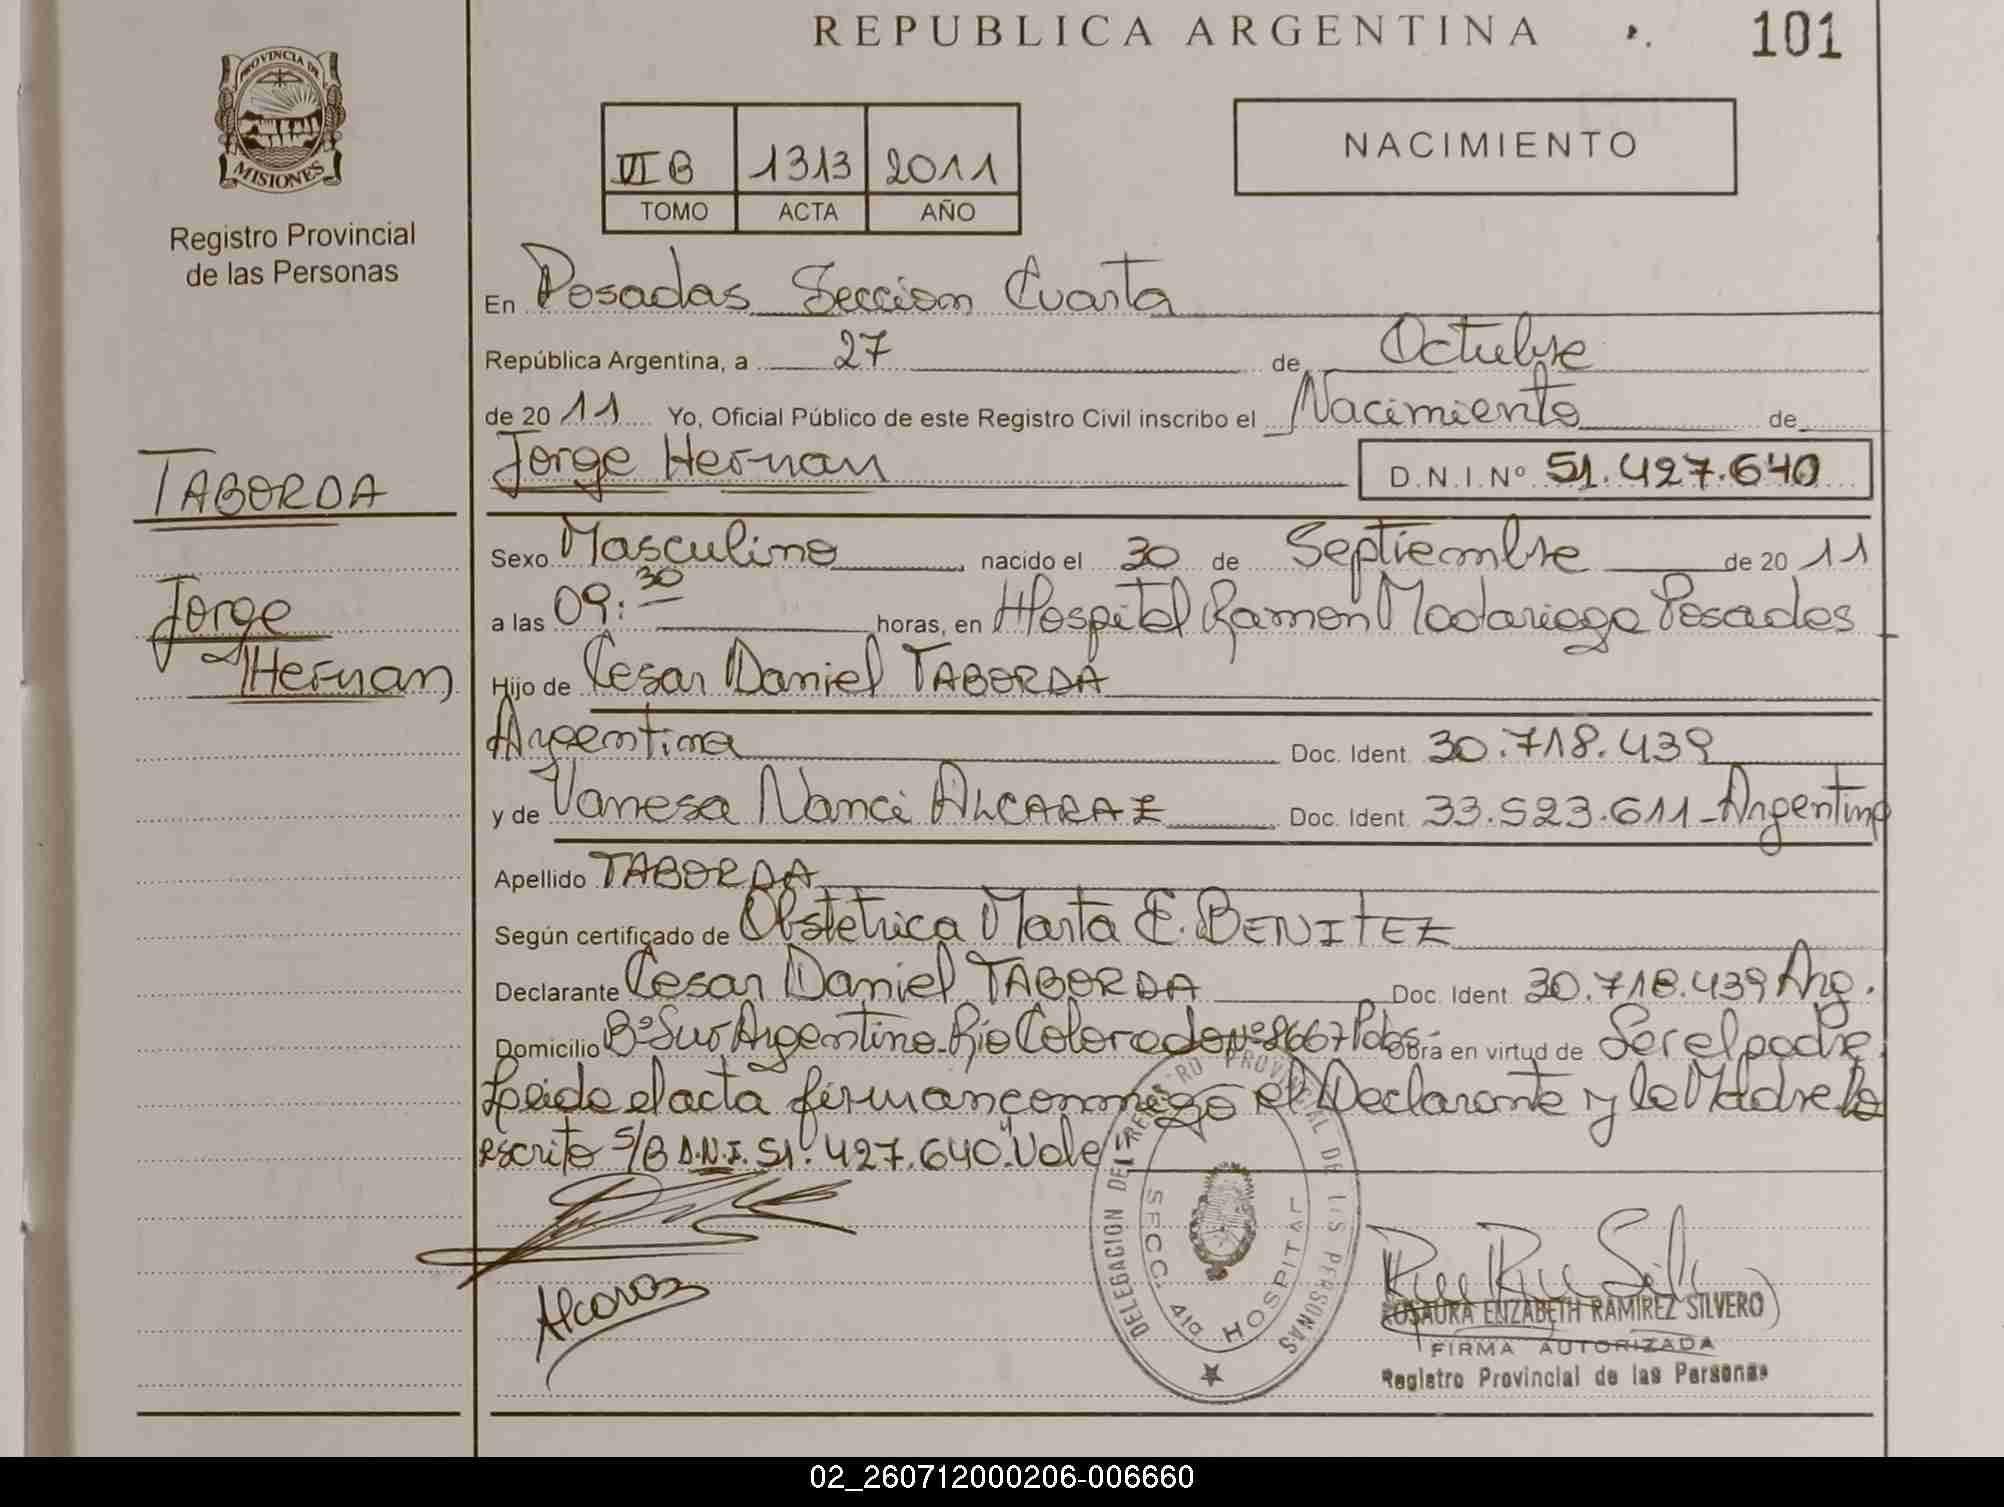 REPUBLICA ARGENTINA
101
PROVINCIA DE
MISIONES
Registro Provincial
de las Personas
VI B 1313 2011
TOMO ACTA AÑO
NACIMIENTO
En Posadas Seccion Cuarta
República Argentina, a 27 de Octubre
de 20 11 Yo, Oficial Público de este Registro Civil inscribo el Nacimiento de
Jorge Hernan D.N.I.Nº 51.427.640
TABORDA
Jorge
Hernan
Sexo Masculino nacido el 30 de Septiembre de 20 11
a las 09:30 horas, en Hospital Ramon Madariaga Posadas
Hijo de Cesar Daniel TABORDA
Argentina Doc. Ident. 30.718.439
y de Vanesa Nanci ALCARAZ Doc. Ident. 33.523.611-Argentina
Apellido TABORDA
Según certificado de Obstetrica Marta E. BENITEZ
Declarante Cesar Daniel TABORDA Doc. Ident. 30.718.439 Arg.
Domicilio Bº Sur Argentino-Rio Colorado Nº 8667 Pdas- Obra en virtud de Ser el padre.
Leida el acta firman conmigo el Declarante y la Madre lo
escrito S/B D.N.I. 51.427.640 "Vale"
DELEGACION DEL REGISTRO PROVINCIAL DE LAS PERSONAS
SECC. 4ta HOSPITAL
Alcaraz
ROSAURA ELIZABETH RAMIREZ SILVERO
FIRMA AUTORIZADA
Registro Provincial de las Personas
02_260712000206-006660